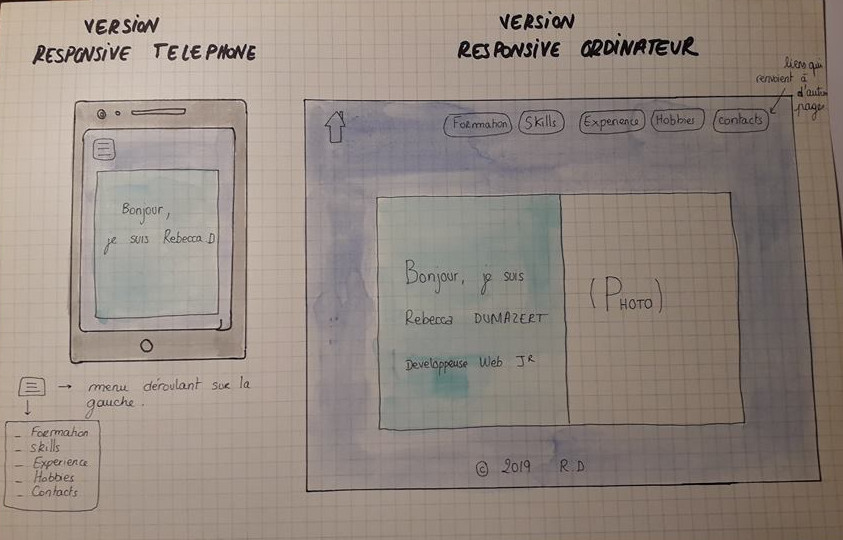 VERSION
RESPONSIVE TELEPHONE
Bonjour,
je suis Rebecca D
→ menu déroulant sur la
gauche.
- Formation
- Skills
- Experience
- Hobbies
- Contacts
VERSION
RESPONSIVE ORDINATEUR
liens qui
renvoient à
d'autres
pages
Formation Skills Experience Hobbies Contacts
Bonjour, je suis
Rebecca DUMAZERT
Developpeuse Web JR
(PHOTO)
© 2019 R D